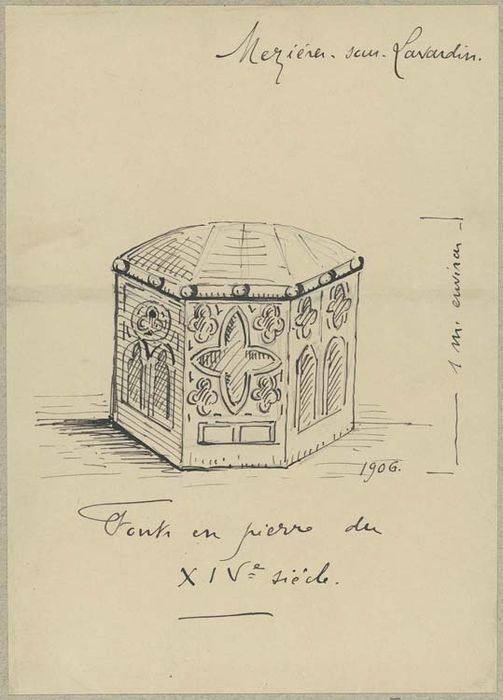 Mezières-sous-Lavardin.
1 m. environ
1906.
Fonts en pierre du
XIVe siècle.